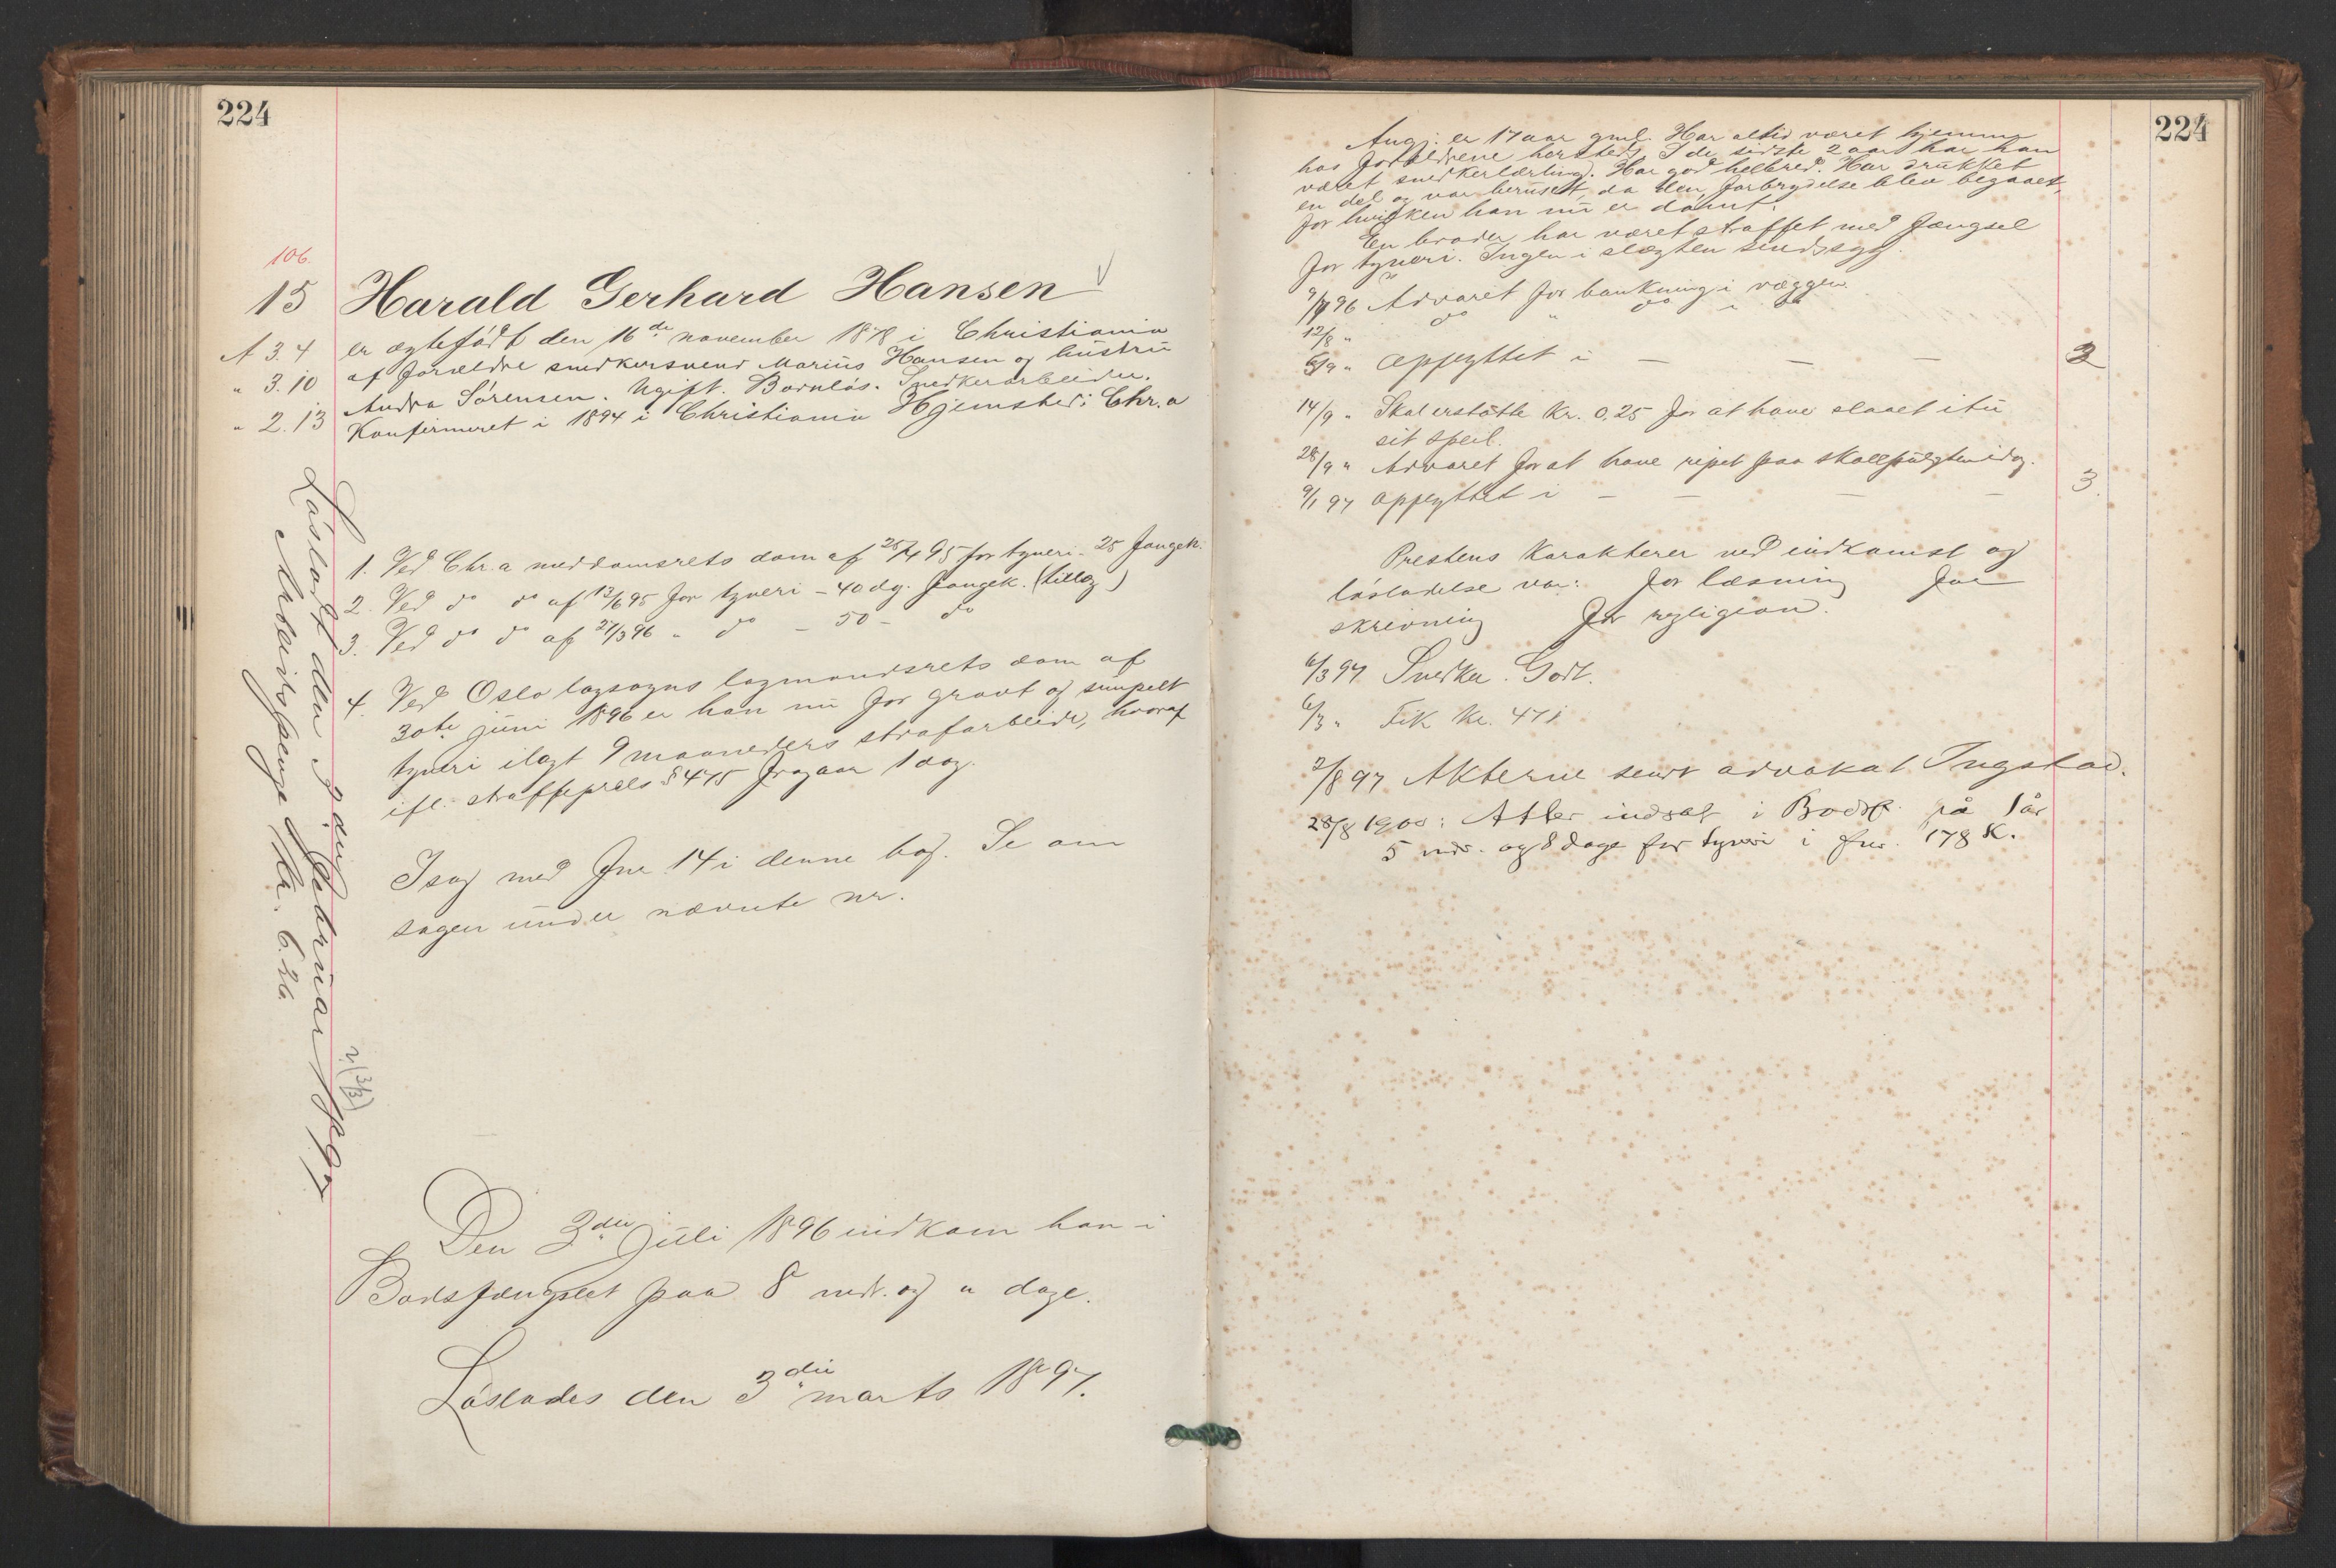 224
106.
15 Harald Gerhard Hansen
A 3.4 er ægtefødt den 16de november 1878 i Christiania
" 3.10 af forældre snedkersvend Marius Hansen og hustru
Andra Sørensen. Ugift. Barnløs. Snedkerarbeider.
" 2.13 Konfirmeret i 1894 i Christiania Hjemsted: Chr.a
1. Ved Chr.a meddomsrets dom af 25/4 95 for tyveri - 25 d. fængsl.
2. Ved do do af 13/6 95 for tyveri - 40 dg. fængsl. (tillæg)
3. Ved do do af 27/3 96 " do - 50 - do
4. Ved Oslo lagsogns lagmandsrets dom af
30te juni 1896 er han nu for grovt og simpelt
tyveri ilagt 9 maaneders strafarbeide, hvoraf
ifl. straffeprcls § 475 fragaar 1 dag.
I sag med fne 14 i denne bog. Se om
sagen under nævnte nr.
Løsladt den 3die februar 1897
Arbeidspenge kr. 6.26.
Den 3die juli 1896 indkom han i
Bodsfængslet paa 8 mdr. og " dage.
Løslades den 3die marts 1897.
224
Angj. er 17 aar gml. Har altid været hjemme
hos forældrene hersteds. I de sidste 2 aar har han
været snedkerlærling. Har god helbred. Har drukket
en del og var beruset, da den forbrydelse blev begaaet,
for hvilken han nu er dømt.
En broder har været straffet med fængsel
for tyveri. Ingen i slægten sindssyg.
9/7 96 Advaret for bankning i væggen.
12/8 " do " do i do
6/9 " Opflyttet i — — — 2
14/9 " Skal erstatte kr. 0,25 for at have slaaet itu
sit speil.
28/9 " Advaret for at have ripet paa skolepulten idag.
9/1 97 Opflyttet i — — — — 3.
Prestens karakterer ved indkomst og
løsladelse var: for læsning for
skrivning for religion.
6/3 97 Snedker. Godt.
6/3 " Fik kr. 47
2/8 97 Akterne sendt advokat Ingstad.
28/8 1900: Atter indsat i Bodsf. på 1 år
5 mdr. og 8 dage for tyveri i fnr. 178 K.